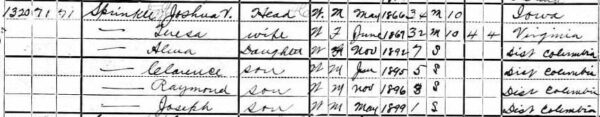 1320 71 71 Sprinkle, Joshua V. Head W M May 1866 34 M 10 Iowa
— Teresa wife W F June 1867 32 M 10 4 4 Virginia
— Alma Daughter W Nov 1892 7 S Dist Columbia
— Clarence son W M Jan 1895 5 S Dist Columbia
— Raymond son W M Nov 1896 3 S Dist Columbia
— Joseph son W M May 1899 1 S Dist Columbia